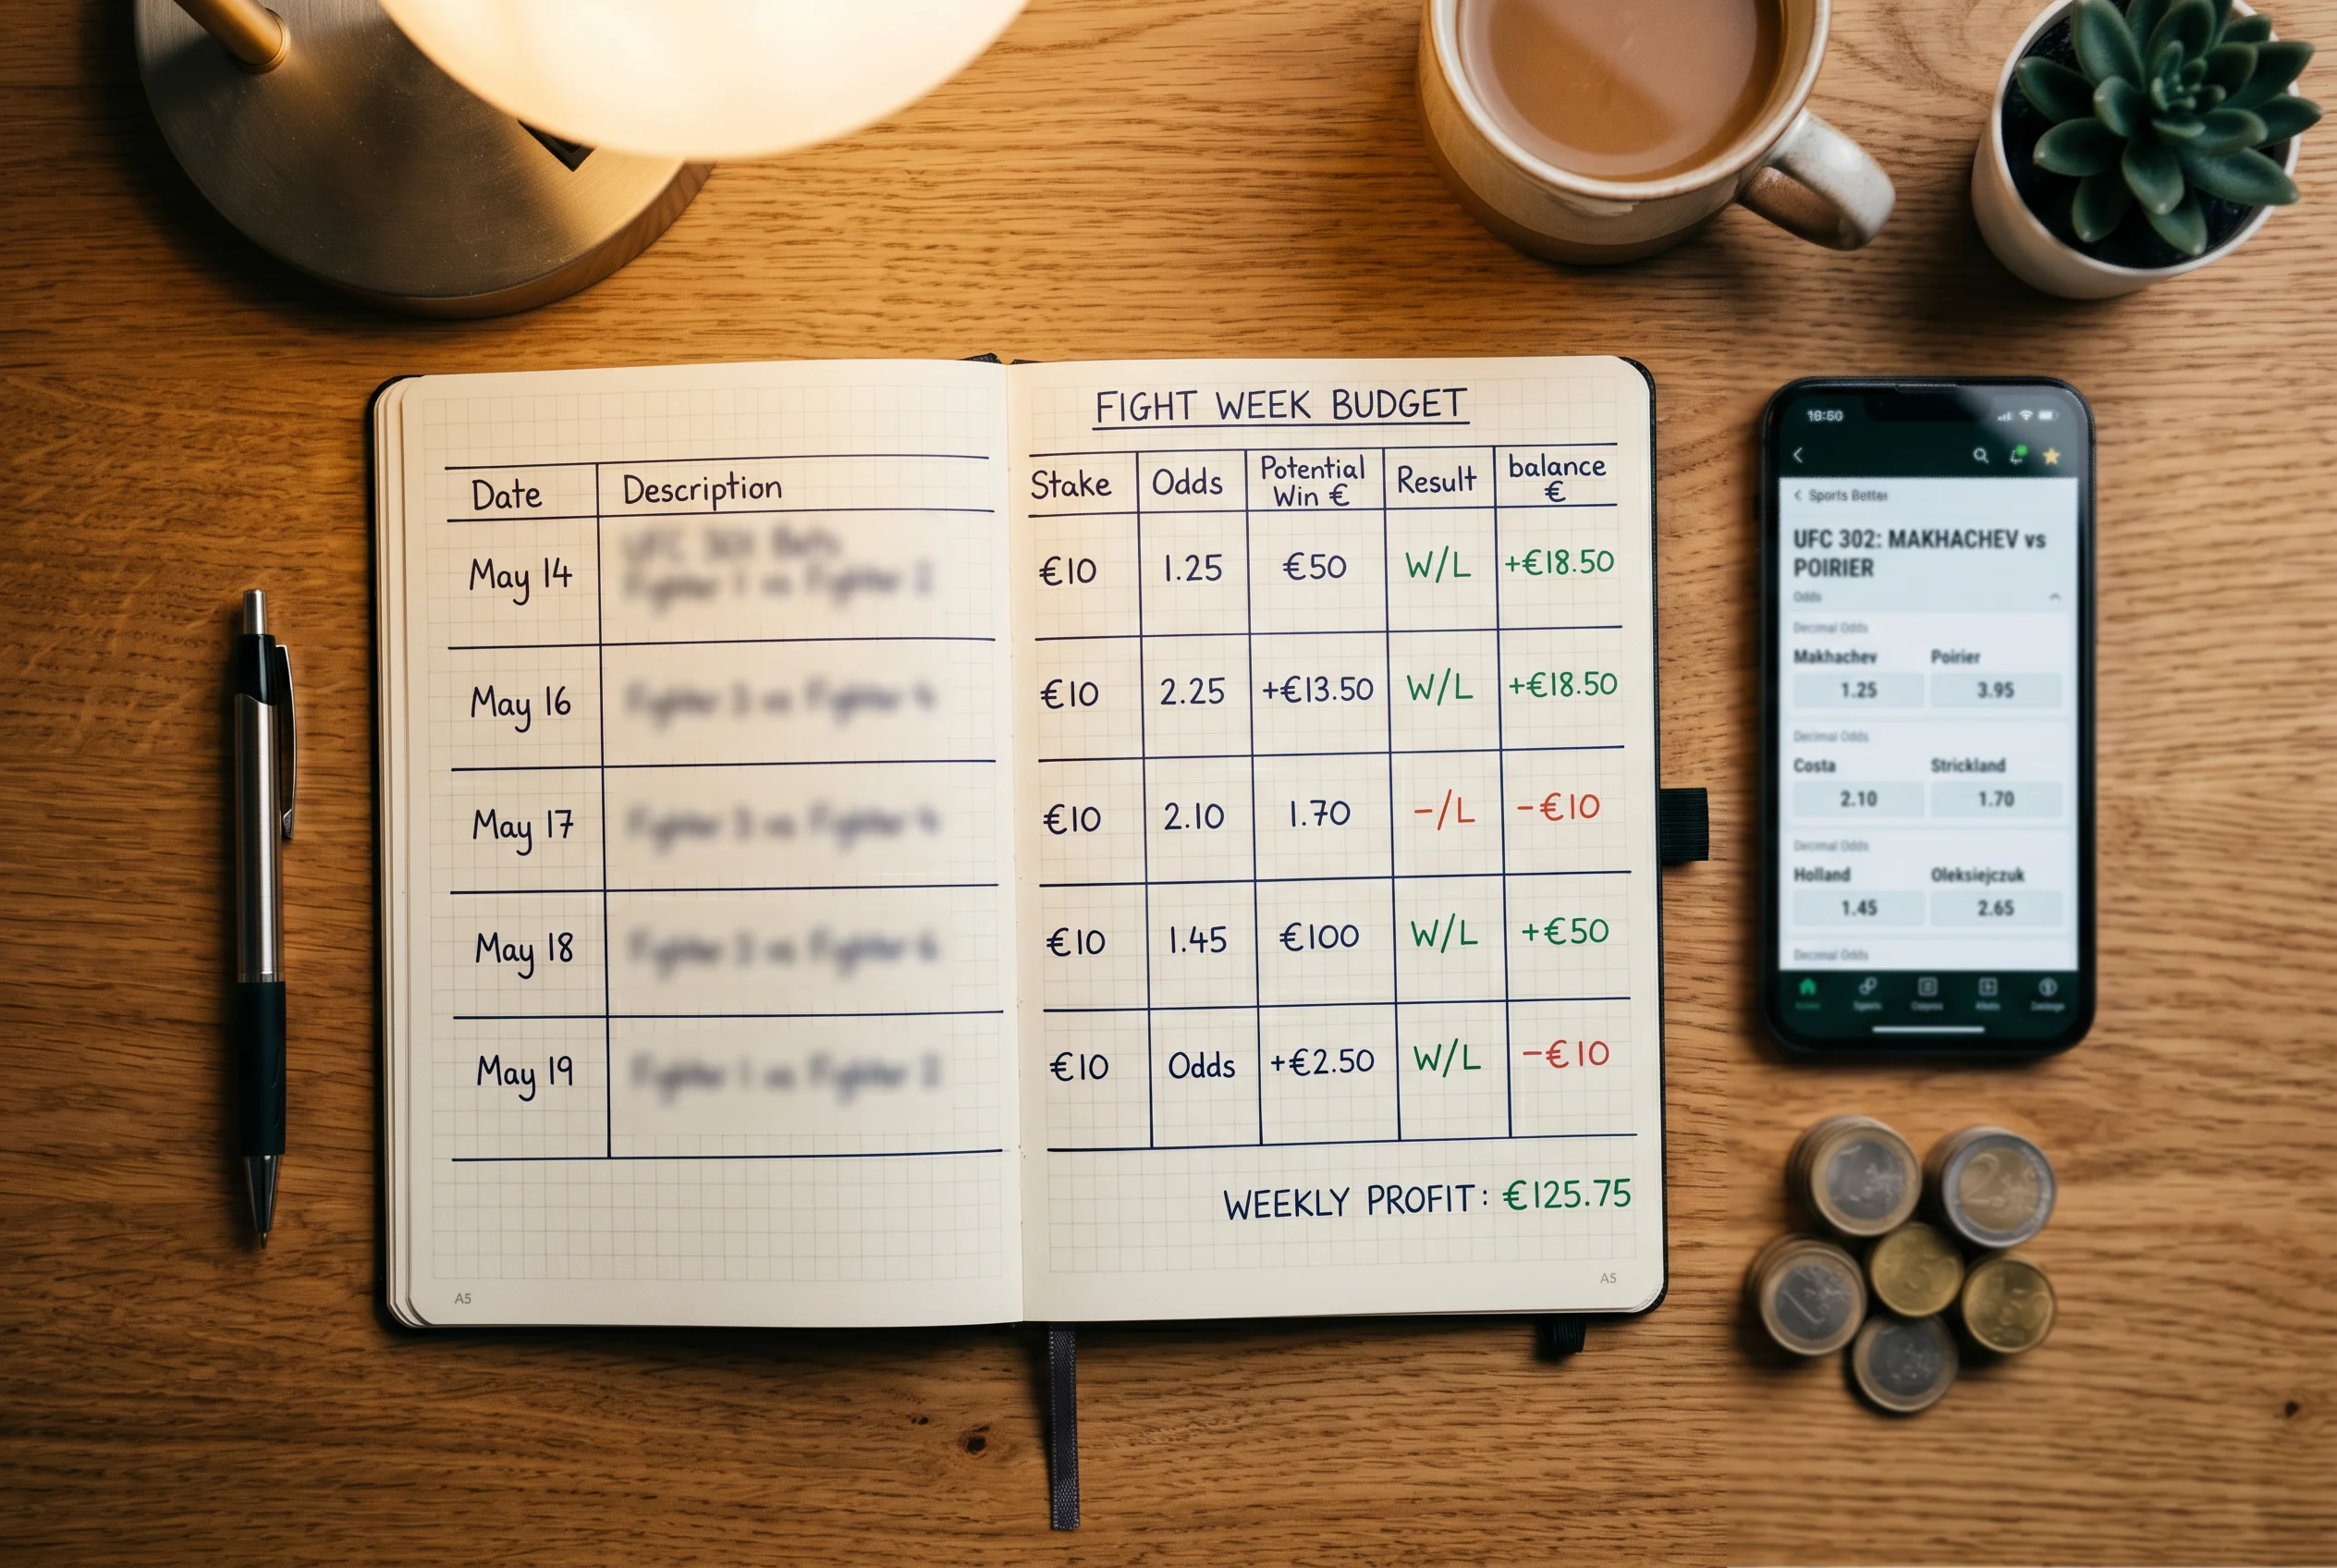 FIGHT WEEK BUDGET
Date Description Stake Odds Potential Win € Result balance €
May 14 €10 1.25 €50 W/L +€18.50
May 16 €10 2.25 +€13.50 W/L +€18.50
May 17 €10 2.10 1.70 -/L -€10
May 18 €10 1.45 €100 W/L +€50
May 19 €10 Odds +€2.50 W/L -€10
WEEKLY PROFIT: €125.75
A5
A5
18:50
Sports Better
UFC 302: MAKHACHEV vs
POIRIER
Odds
Decimal Odds
Makhachev Poirier
1.25 3.95
Decimal Odds
Costa Strickland
2.10 1.70
Decimal Odds
Holland Oleksiejczuk
1.45 2.65
Decimal Odds